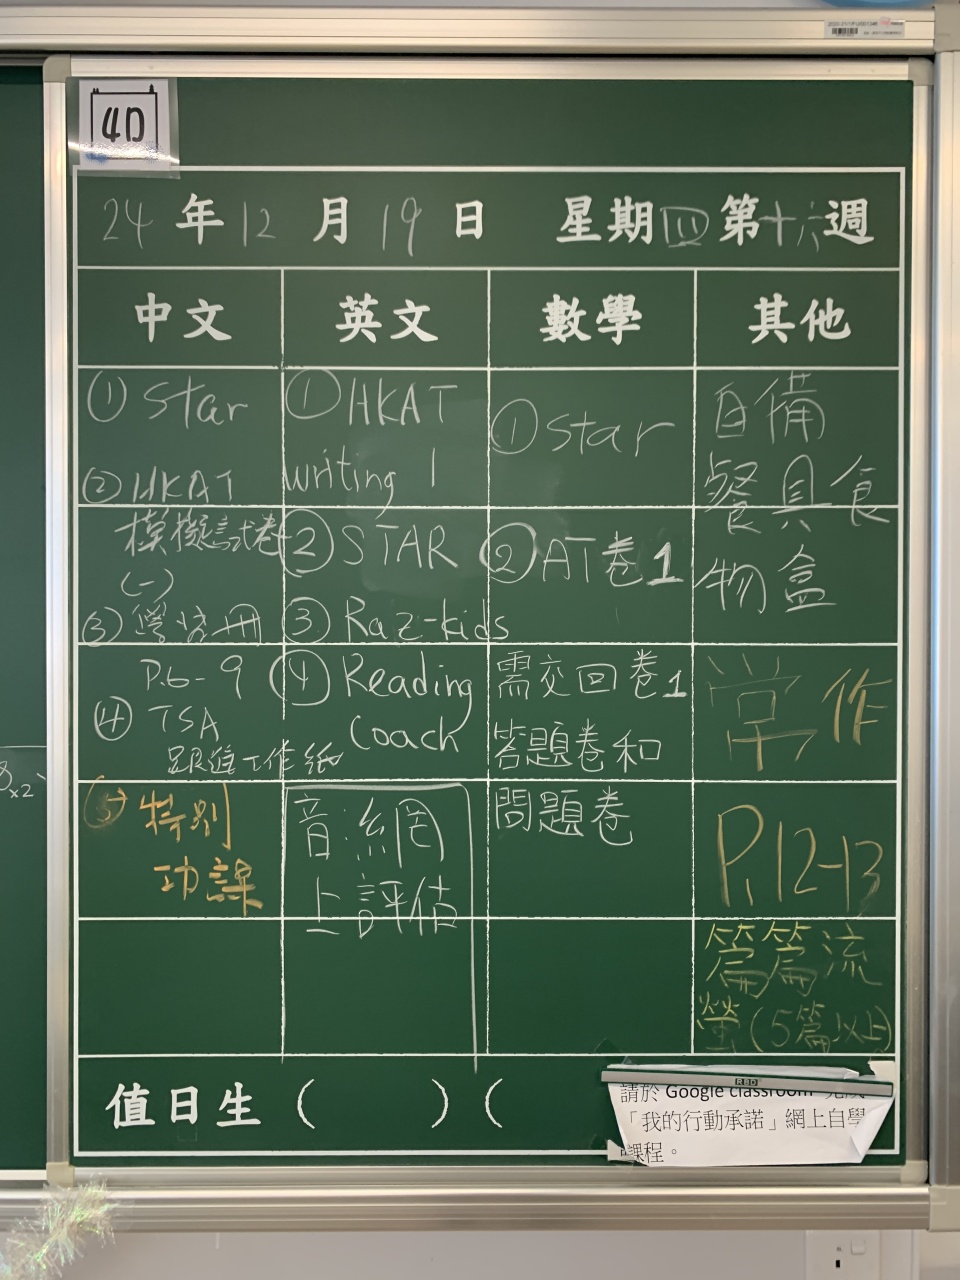 4D
24 年 12 月 19 日 星期四 第十六週
中文
英文
數學
其他
① Star
② HKAT
模擬試卷
(一)
③ 學習冊
P.6-9
④ TSA
跟進工作紙
⑤ 特別
功課
① HKAT
writing 1
② STAR
③ Raz-kids
④ Reading
Coach
音:網
上評估
① star
② AT卷1
需交回卷1
答題卷和
問題卷
自備
餐具食
物盒
常作
P.12-13
篇篇流
螢(5篇以上)
值日生 ( ) (
請於 Google classroom 完成
「我的行動承諾」網上自學
課程。
x2
RBD